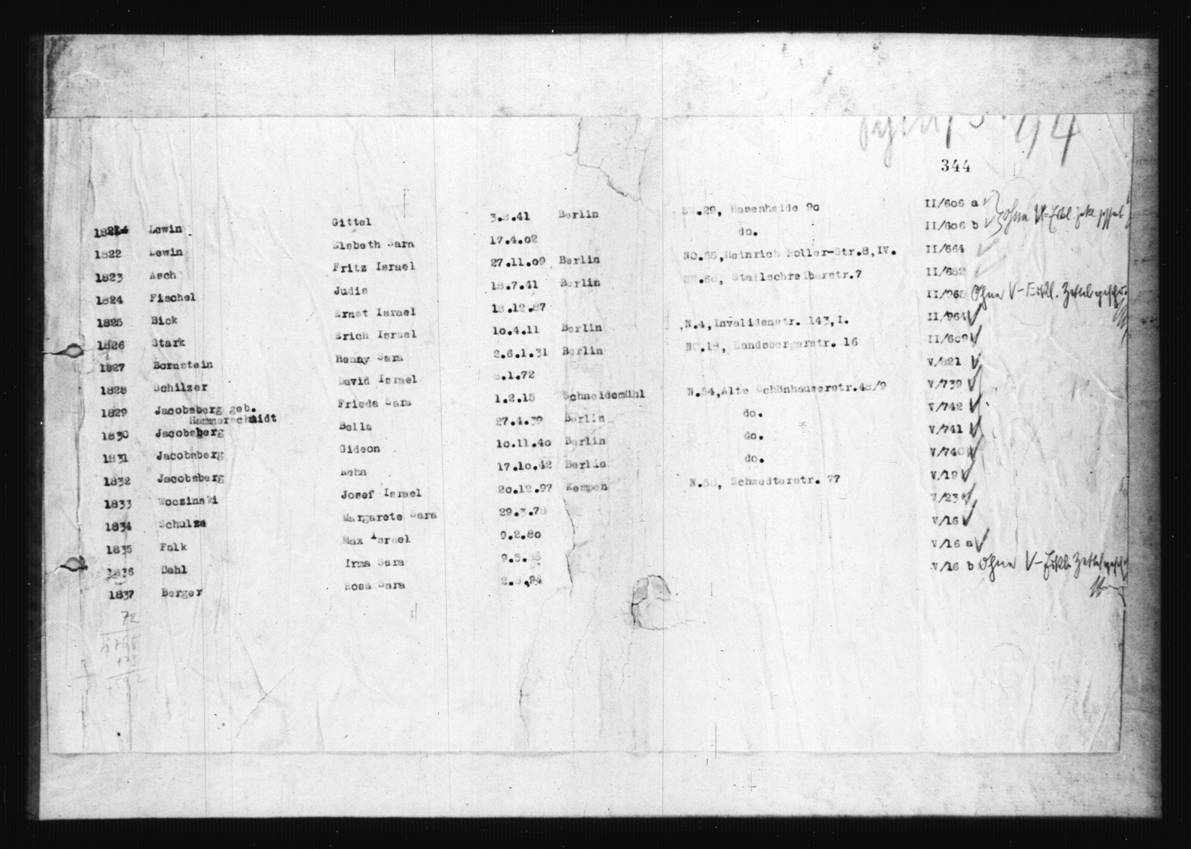 344
1821 Lewin Gittel 3.8.41 Berlin SW.29, Hasenheide 90 II/606 a
1822 Lewin Elsbeth Sara 17.4.02 do. II/606 b
1823 Asch Fritz Israel 27.11.09 Berlin NO.55, Heinrich Roller-Str.8, IV. II/664
1824 Fischel Judis 18.7.41 Berlin SW.68, Stallschreiberstr.7 II/682
1825 Bick Ernst Israel 18.12.87 II/965 Ohne V-Erkl.
1826 Stark Erich Israel 10.4.11 Berlin N.4, Invalidenstr. 143, I. II/964
1827 Bornstein Henny Sara 2.6.1.31 Berlin NO.18, Landsbergerstr. 16 II/609
1828 Schilzer David Israel .1.72 V/821
1829 Jacobsberg geb. Frieda Sara 1.2.15 Schneidemühl N.54, Alte Schönhauserstr.48/9 V/739
Hammerschmidt
1830 Jacobsberg Bella 27.4.39 Berlin do. V/742
1831 Jacobsberg Gideon 10.11.40 Berlin do. V/741
1832 Jacobsberg 17.10.42 Berlin do. V/740
1833 Woczinski Josef Israel 20.12.97 Kempen N.58, Schwedterstr. 77 V/19
1834 Schulze Margarete Sara 29.3.78 V/23
1835 Falk Max Israel 9.2.80 V/16
1836 Dahl Irma Sara V/16 a
1837 Berger Rosa Sara V/16 b ohne V-Erkl.
72